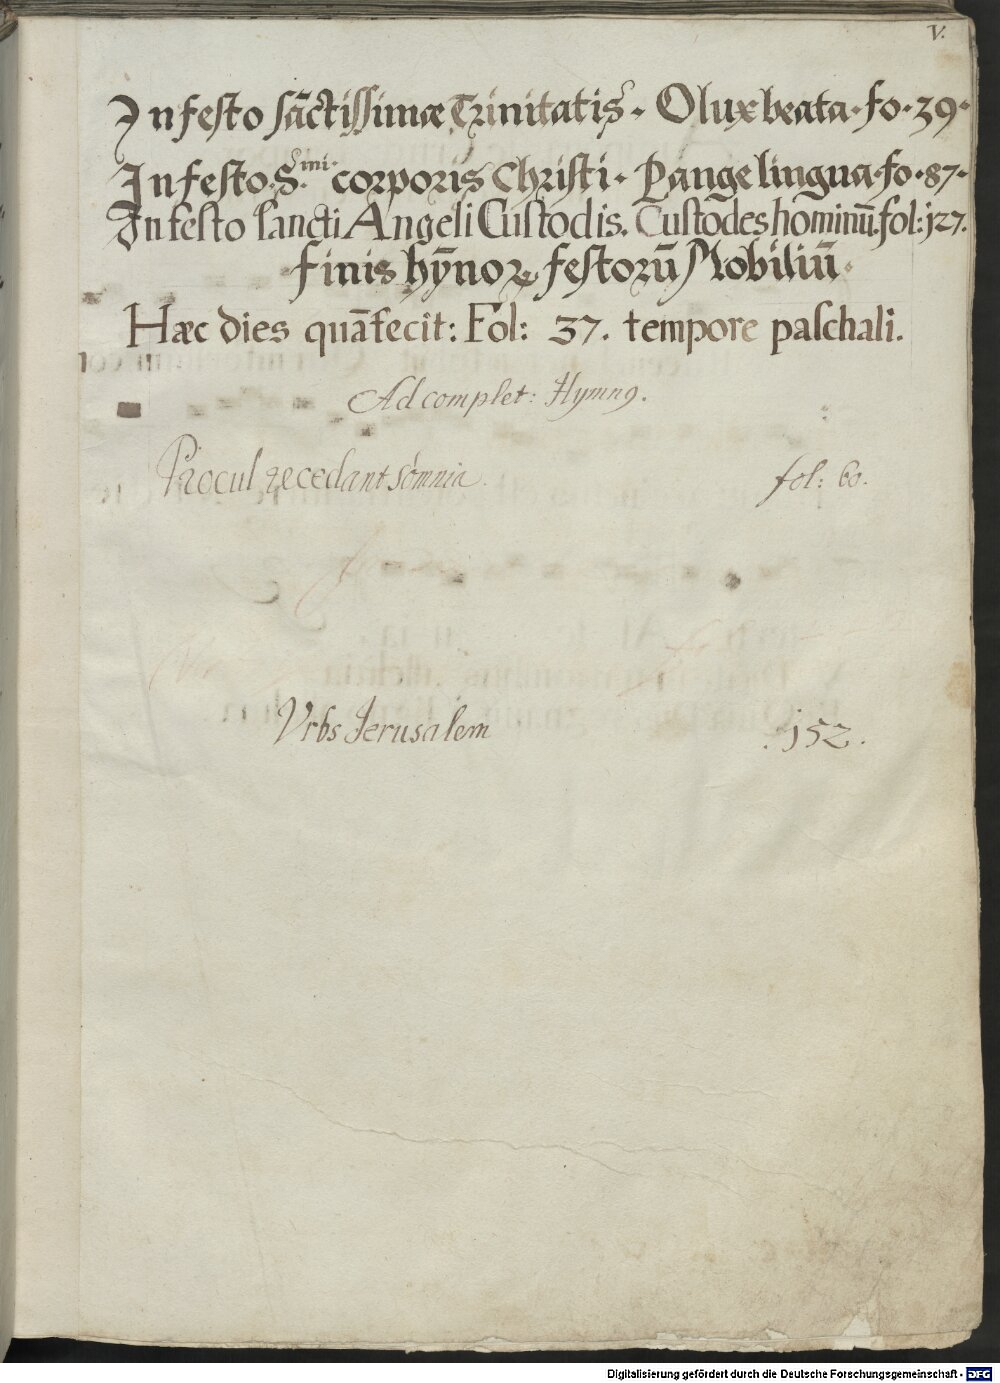 V.
In festo sāctissimæ Trinitatis. O lux beata. fo. 39.
In festo. S.mi. corporis Christi. Pange lingua. fo. 87.
In festo sancti Angeli Custodis. Custodes hominū. fol: j27.
finis hȳnoꝝ festorū Mobiliū.
Hæc dies quā fecit: Fol: 37. tempore paschali.
Ad complet: Hymnꝯ.
Procul recedant sómnia. fol: 60.
Vrbs Jerusalem . j52.
Digitalisierung gefördert durch die Deutsche Forschungsgemeinschaft - DFG